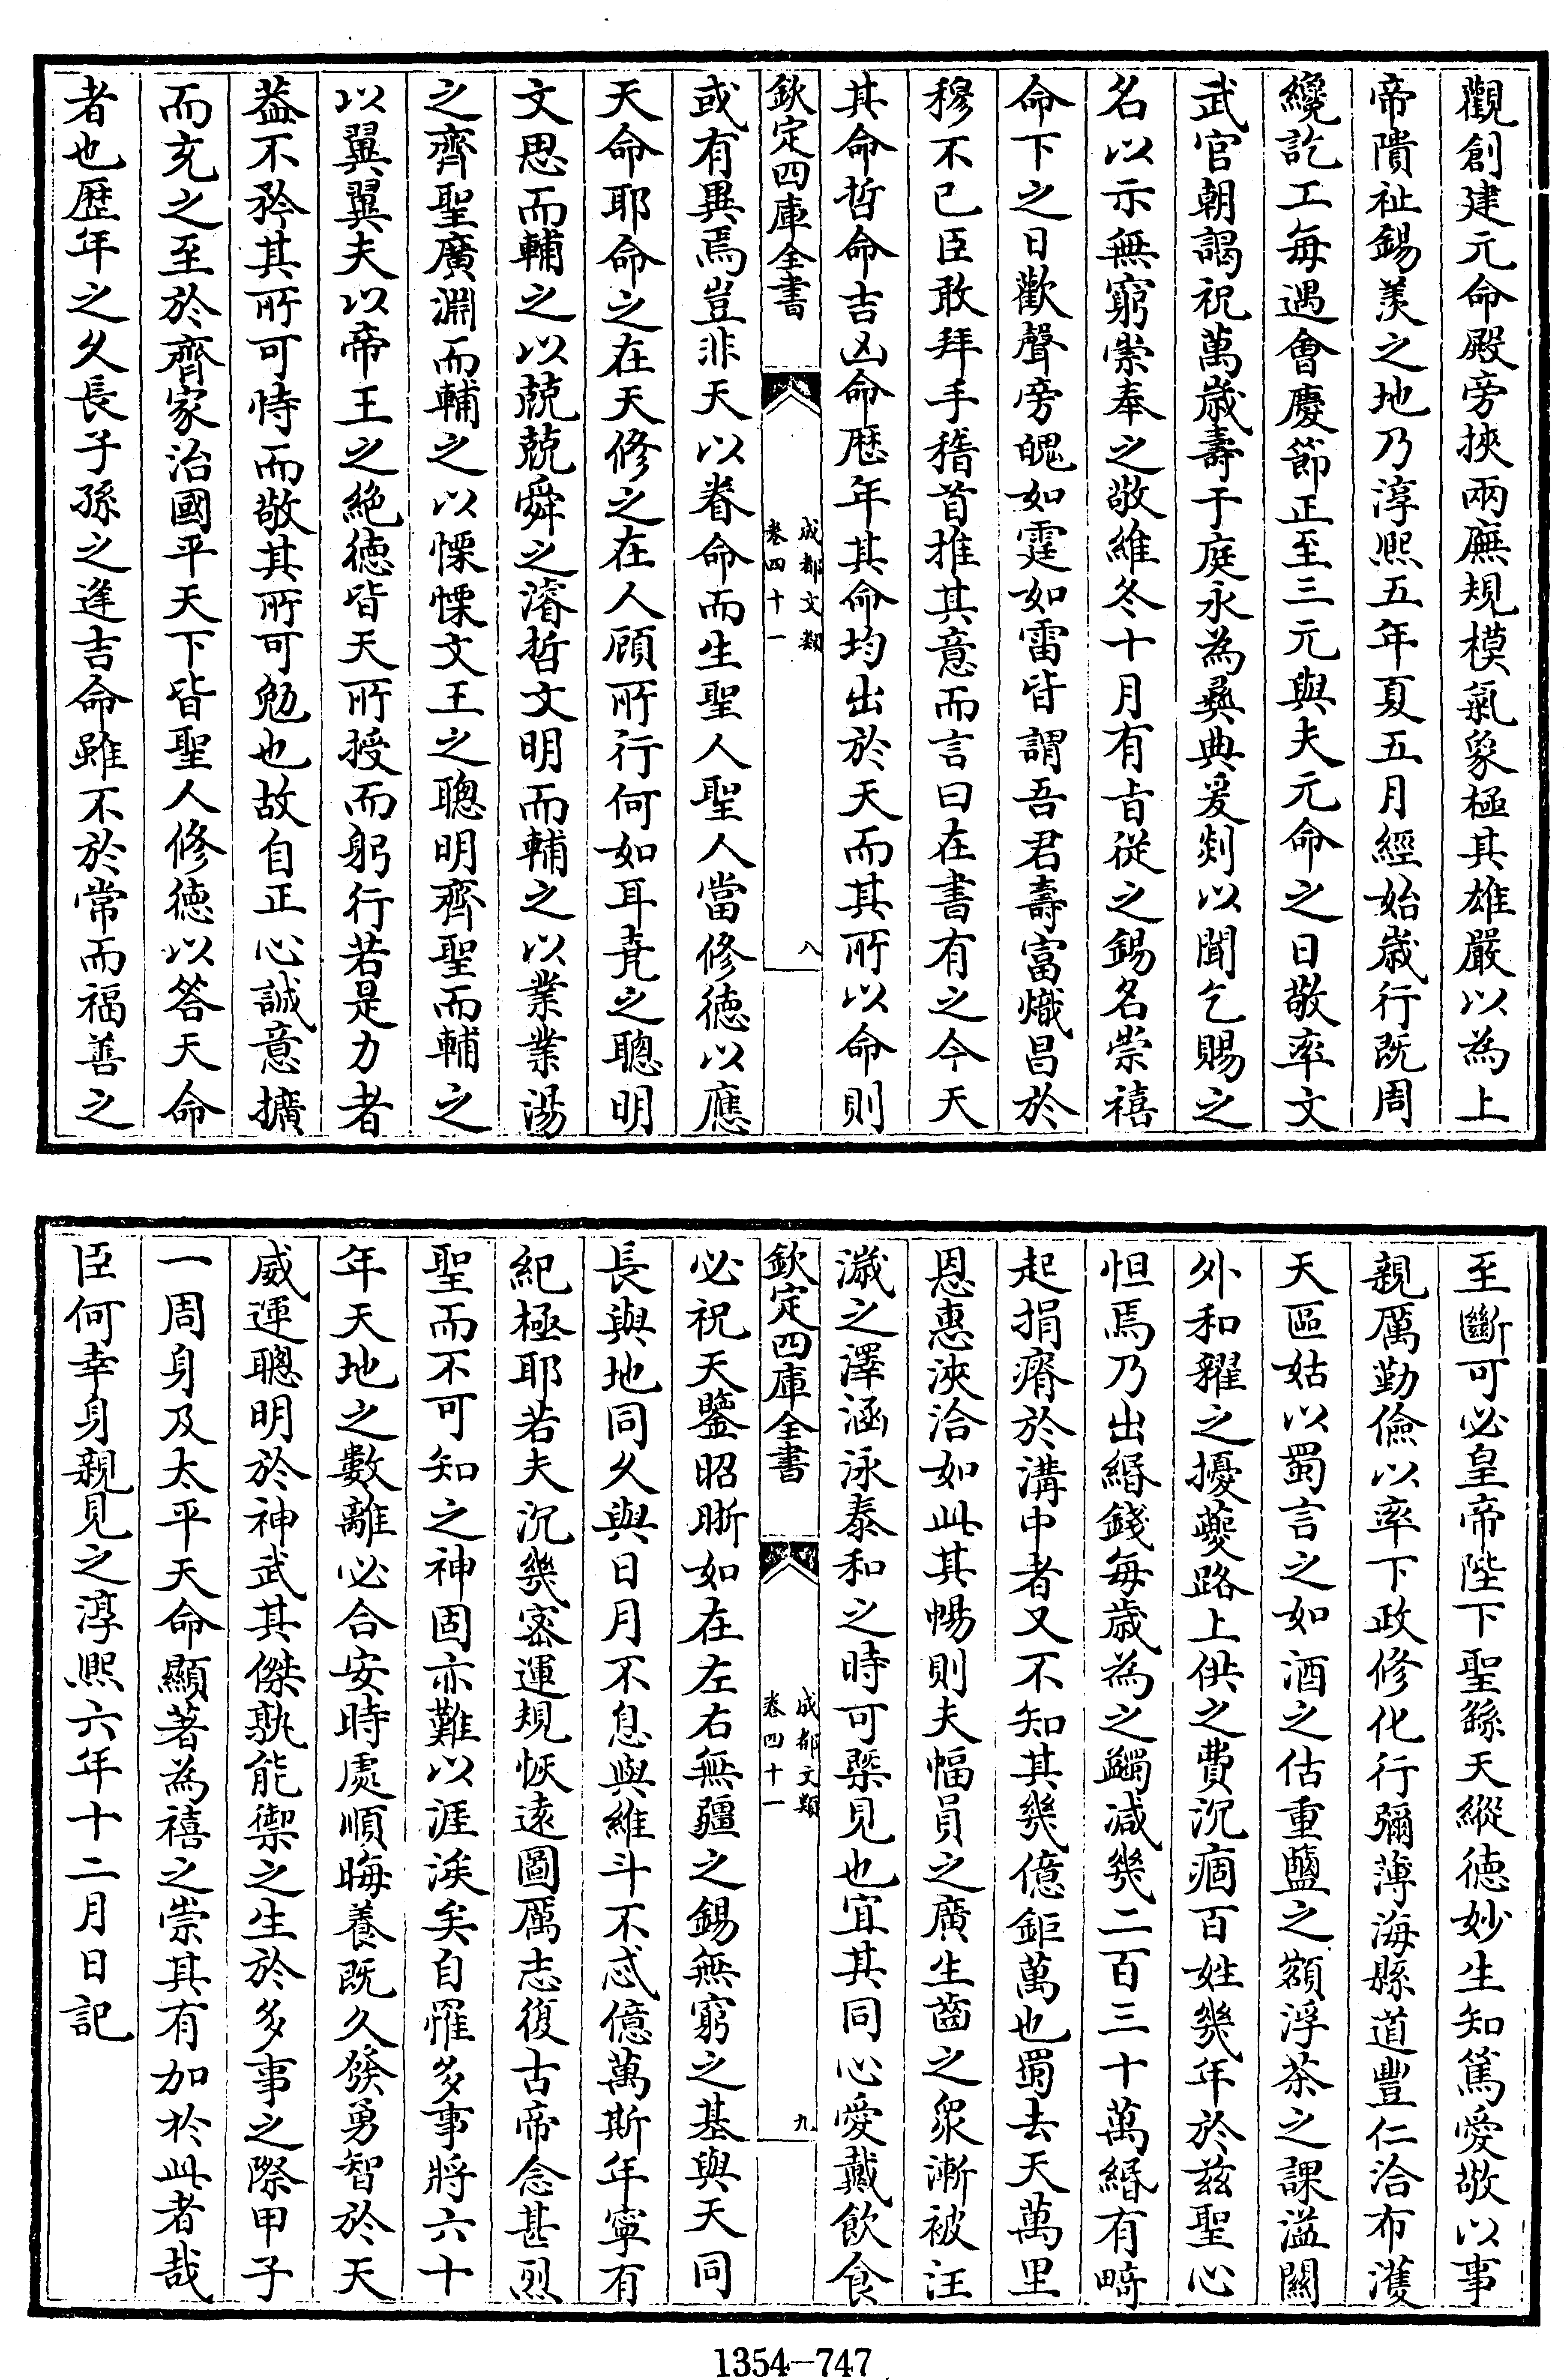 觀創建元命殿旁挾兩廡規模氣象極其雄嚴以為上
帝隤祉錫羡之地乃淳熙五年夏五月經始歲行既周
纔訖工每遇會慶節正至三元與夫元命之日敬率文
武官朝謁祝萬歲壽于庭永為彞典爰剡以聞乞賜之
名以示無窮崇奉之敬維冬十月有㫖從之錫名崇禧
命下之日歡聲旁魄如霆如雷皆謂吾君壽富熾昌於
穆不已臣敢拜手稽首推其意而言曰在書有之今天
其命哲命吉凶命歴年其命均出於天而其所以命則
欽定四庫全書
成都文類
卷四十一
八
或有異焉豈非天以眷命而生聖人聖人當修徳以應
天命耶命之在天修之在人顧所行何如耳堯之聰明
文思而輔之以兢兢舜之濬哲文明而輔之以業業湯
之齊聖廣淵而輔之以慄慄文王之聰明齊聖而輔之
以翼翼夫以帝王之絶徳皆天所授而躬行若是力者
葢不矜其所可恃而敬其所可勉也故自正心誠意擴
而充之至於齊家治國平天下皆聖人修徳以答天命
者也歴年之久長子孫之逢吉命雖不於常而福善之
至斷可必皇帝陛下聖繇天縱徳妙生知篤愛敬以事
親厲勤儉以率下政修化行彌薄海縣道豐仁洽布濩
天區姑以蜀言之如酒之估重鹽之額浮茶之課溢關
外和糴之擾夔路上供之費沉痼百姓幾年於兹聖心
怛焉乃出緡錢每歲為之蠲减幾二百三十萬緡有畸
起捐瘠於溝中者又不知其幾億鉅萬也蜀去天萬里
恩惠浹洽如此其暢則夫幅員之廣生齒之衆漸被汪
濊之澤涵泳泰和之時可槩見也宜其同心愛戴飲食
欽定四庫全書
成都文類
卷四十一
九
必祝天鑒昭晰如在左右無疆之錫無窮之基與天同
長與地同久與日月不息與維斗不忒億萬斯年寧有
紀極耶若夫沉幾密運規恢遠圖厲志復古帝念甚烈
聖而不可知之神固亦難以涯涘矣自罹多事將六十
年天地之數離必合安時處順晦養既久發勇智於天
威運聰明於神武其傑孰能禦之生於多事之際甲子
一周身及太平天命顯著為禧之崇其有加於此者哉
臣何幸身親見之淳熙六年十二月日記
1354—747